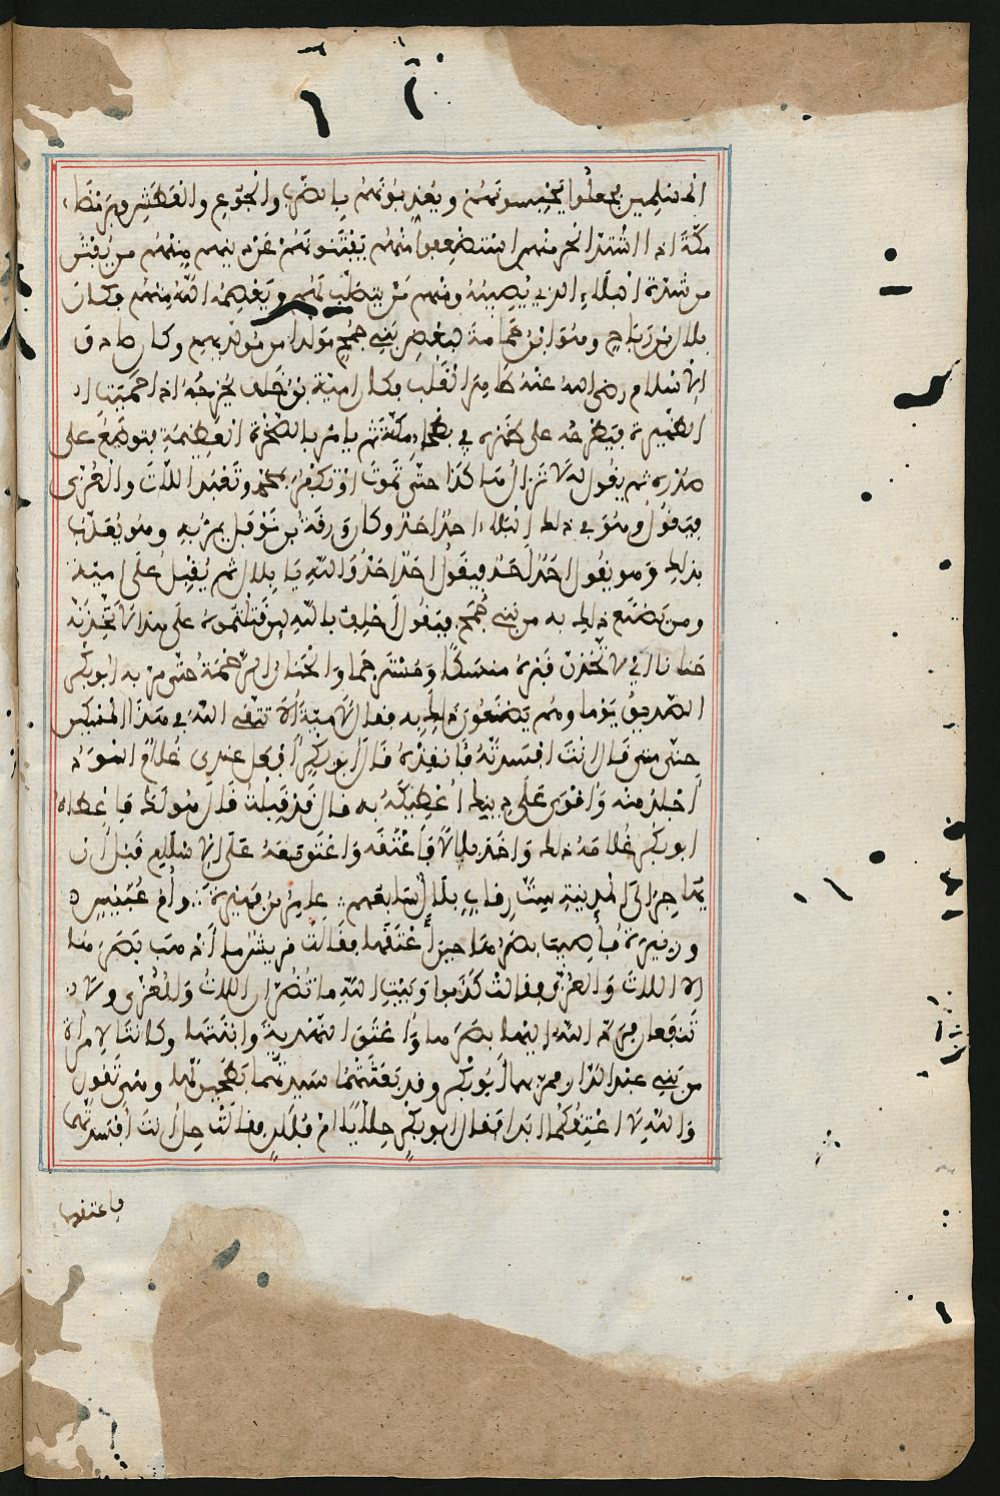 المسلمين فجعلوا يحبسونهم ويعذبونهم بالضرب والجوع والعطش وبرمضاء
مكة اذا اشتد الحر من استضعفوا منهم يفتنونهم عن دينهم فمنهم من يفتن
من شدة البلاء الذي يصيبه ومنهم من يتصلب لهم ويعصمه الله منهم وكان
بلال بن رباح وهو ابن حمامة لبعض بني جمح مولدا من مولديهم وكان صادق
الاسلام رضي الله عنه طاهر القلب فكان امية بن خلف يخرجه اذا حميت
الظهيرة فيطرحه على ظهره في بطحاء مكة ثم يامر بالصخرة العظيمة فتوضع على
صدره ثم يقول له لا تزال هاكذا حتى تموت او تكفر بمحمد وتعبد اللات والعزى
فيقول وهو في ذلك البلاء احد احد وكان ورقة بن نوفل يمر به وهو يعذب
بذلك وهو يقول احد احد فيقول احد احد والله يا بلال ثم يقبل على امية
ومن يصنع ذلك به من بني جمح فيقول احلف بالله لين قتلتموه على هذا لاتخذنه
حنانا اي لاتخذن قبره منسكا ومسترحما والحنان الرحمة حتى مر به ابو بكر
الصديق يوما وهم يصنعون ذلك به فقال لامية الا تتقي الله في هذا المسكين
حتى متى قال انت افسدته فانقذه قال ابو بكر افعل عندي غلام اسود
اجلد منه واقوى على دينك اعطيكه به قال قد قبلت قال هو لك فاعطاه
ابو بكر غلامه ذلك واخذ بلالا فاعتقه واعتق معه على الاسلام قبل ان
يهاجر الى المدينة ست رقاب بلال سابعهم عامر بن فهيرة وام عبيس
وزنيرة فاصيب بصرها حين اعتقها فقالت قريش ما اذهب بصرها
الا اللات والعزى فقالت كذبوا وبيت الله ما تضر اللات والعزى ولا
تنفعان فرد الله اليها بصرها واعتق النهدية وابنتها وكانتا لامراة
من بني عبد الدار فمر بهما ابو بكر وقد بعثتهما سيدتهما بطحين لها وهي تقول
والله لا اعتقكما ابدا فقال ابو بكر حلا يا ام فلان فقالت حل انت افسدتهما
فاعتقهما